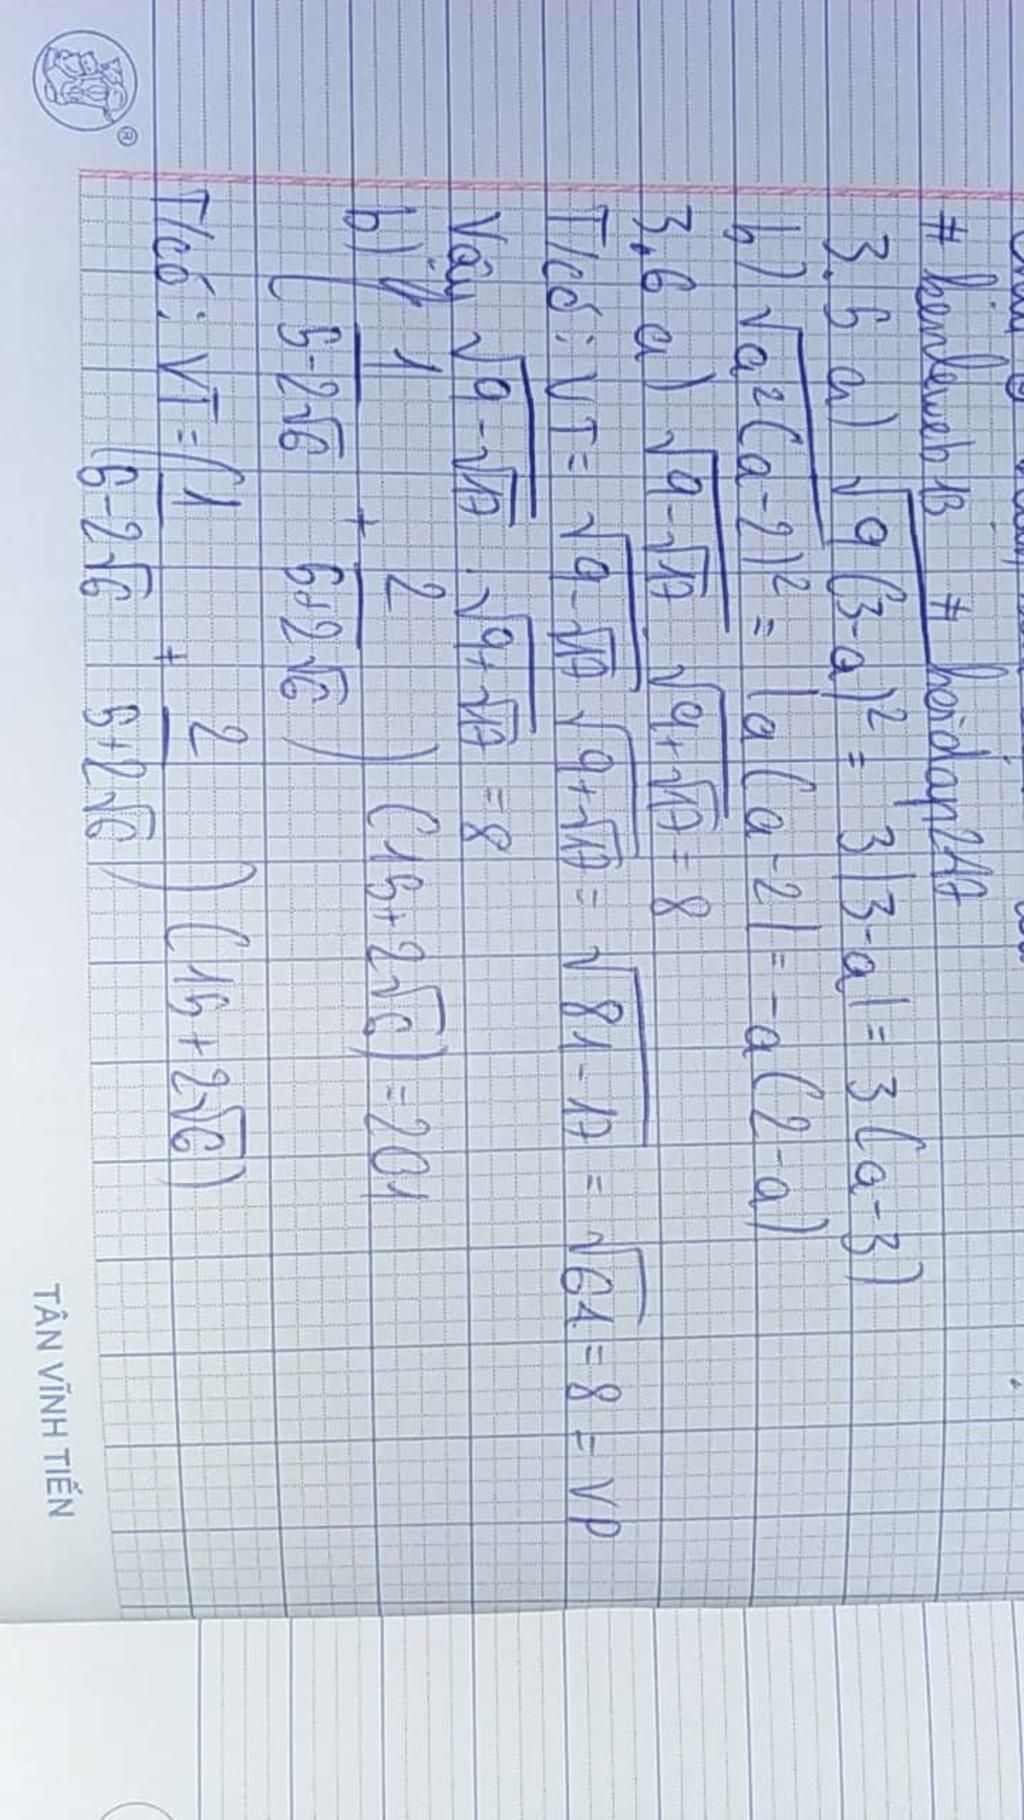 # kenlaweb13 # hoidap247
3.5 a) √9(3-a)² = 3|3-a| = 3(a-3)
b) √a²(a-2)² = |a(a-2| = -a(2-a)
3.6 a) √9-√17 . √9+√17 = 8
T/có: VT = √9-√17 √9+√17 = √81-17 = √64 = 8 = VP
Vậy √9-√17 . √9+√17 = 8
b) (1/5-2√6 + 2/5+2√6) (15+2√6) = 201
T/có: VT = (1/5-2√6 + 2/5+2√6) (15+2√6)
TÂN VĨNH TIẾN
®